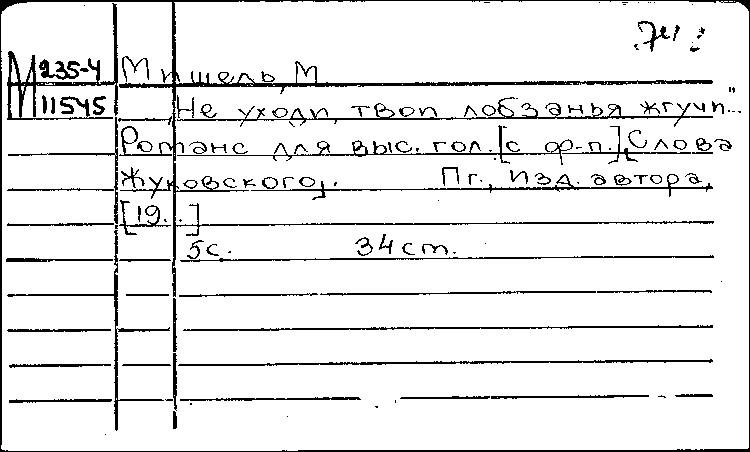 М 235-4 Мишель, М.
М 11545 „Не уходи, твои лобзанья жгучи"...
Романс для выс. гол. [с ф-п.], [Слова
Жуковского]. Пг., Изд. автора,
[19..]
5с. 34 ст.